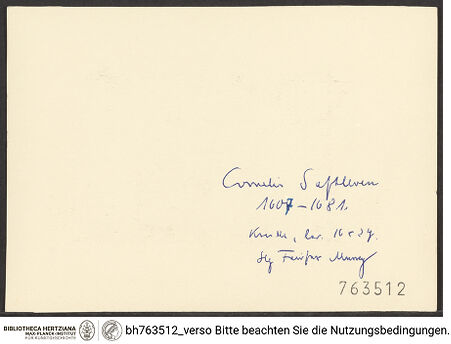 Cornelis Saftleven
1607–1681.
Kreide, lav. 16 x 27.
Slg Fairfax Murray
763512
BIBLIOTHECA HERTZIANA
MAX-PLANCK-INSTITUT
FÜR KUNSTGESCHICHTE
bh763512_verso Bitte beachten Sie die Nutzungsbedingungen.